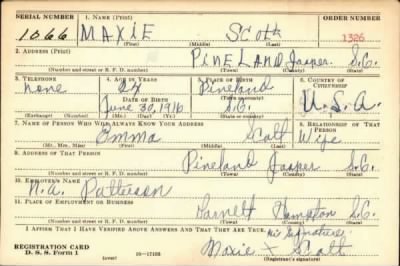 SERIAL NUMBER 1. NAME (Print) ORDER NUMBER
1066 MAXIE SCOTT 1326
(First) (Middle) (Last)
2. ADDRESS (Print)
PINELAND Jasper S.C.
(Number and street or R. F. D. number) (Town) (County) (State)
3. TELEPHONE 4. AGE IN YEARS 5. PLACE OF BIRTH 6. COUNTRY OF CITIZENSHIP
none 24 Pineland
DATE OF BIRTH (Town or county)
June 30, 1916 S.C. U.S.A.
(Exchange) (Number) (Mo.) (Day) (Yr.) (State or country)
7. NAME OF PERSON WHO WILL ALWAYS KNOW YOUR ADDRESS 8. RELATIONSHIP OF THAT PERSON
Emma Scott Wife
(Mr., Mrs., Miss) (First) (Middle) (Last)
9. ADDRESS OF THAT PERSON
Pineland Jasper S.C.
(Number and street or R. F. D. number) (Town) (County) (State)
10. EMPLOYER'S NAME
N.A. Patterson
11. PLACE OF EMPLOYMENT OR BUSINESS
Garnett Hampton S.C.
(Number and street or R. F. D. number) (Town) (County) (State)
I AFFIRM THAT I HAVE VERIFIED ABOVE ANSWERS AND THAT THEY ARE TRUE.
his signature
REGISTRATION CARD Maxie X Scott
D. S. S. Form 1 (over) 16—17105 (Registrant's signature)